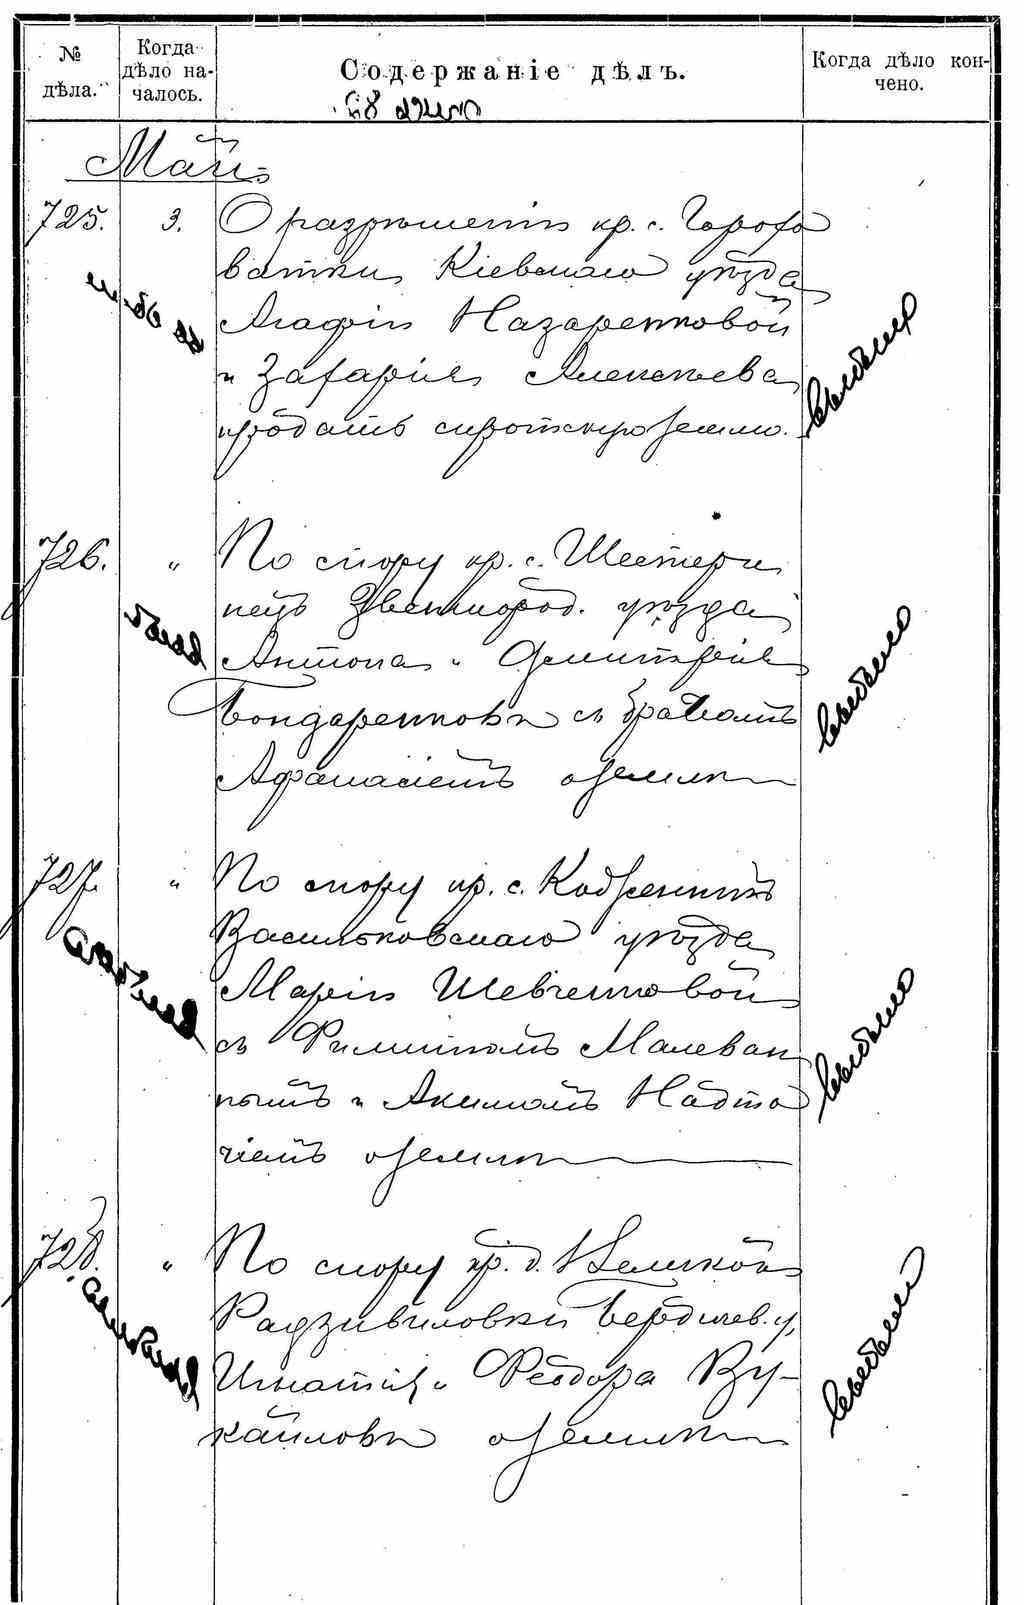 № дѣла.
Когда дѣло на-
чалось.
Содержаніе дѣлъ.
Когда дѣло кон-
чено.
Май
725. 3. О разрѣшеніи кр. с. Горохо
ватки Кіевскаго уѣзда
Агафіи Назаренковой
и Захарія Алексѣева
продать сиротскую землю.
726. " По спору кр. с. Шестери
нецъ Звенигород. уѣзда
Антона и Дмитрія
Бондаренковъ съ братомъ
Афанасіемъ о землѣ
727. " По спору кр. с.
Васильковскаго уѣзда
Маріи Шевченковой
съ Филиппомъ Малеван
нымъ и Акимомъ Надто
чіемъ о землѣ
728. " По спору кр. д. Великой
Радзивиловки Бердичев. у.
Игнатія и Феодора Ву-
каиловъ о землѣ
выбыло
выбыло
выбыло
выбыло